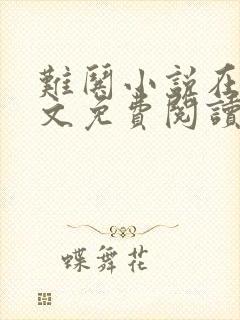 難鬪小説在
文免費閱讀
蝶舞花